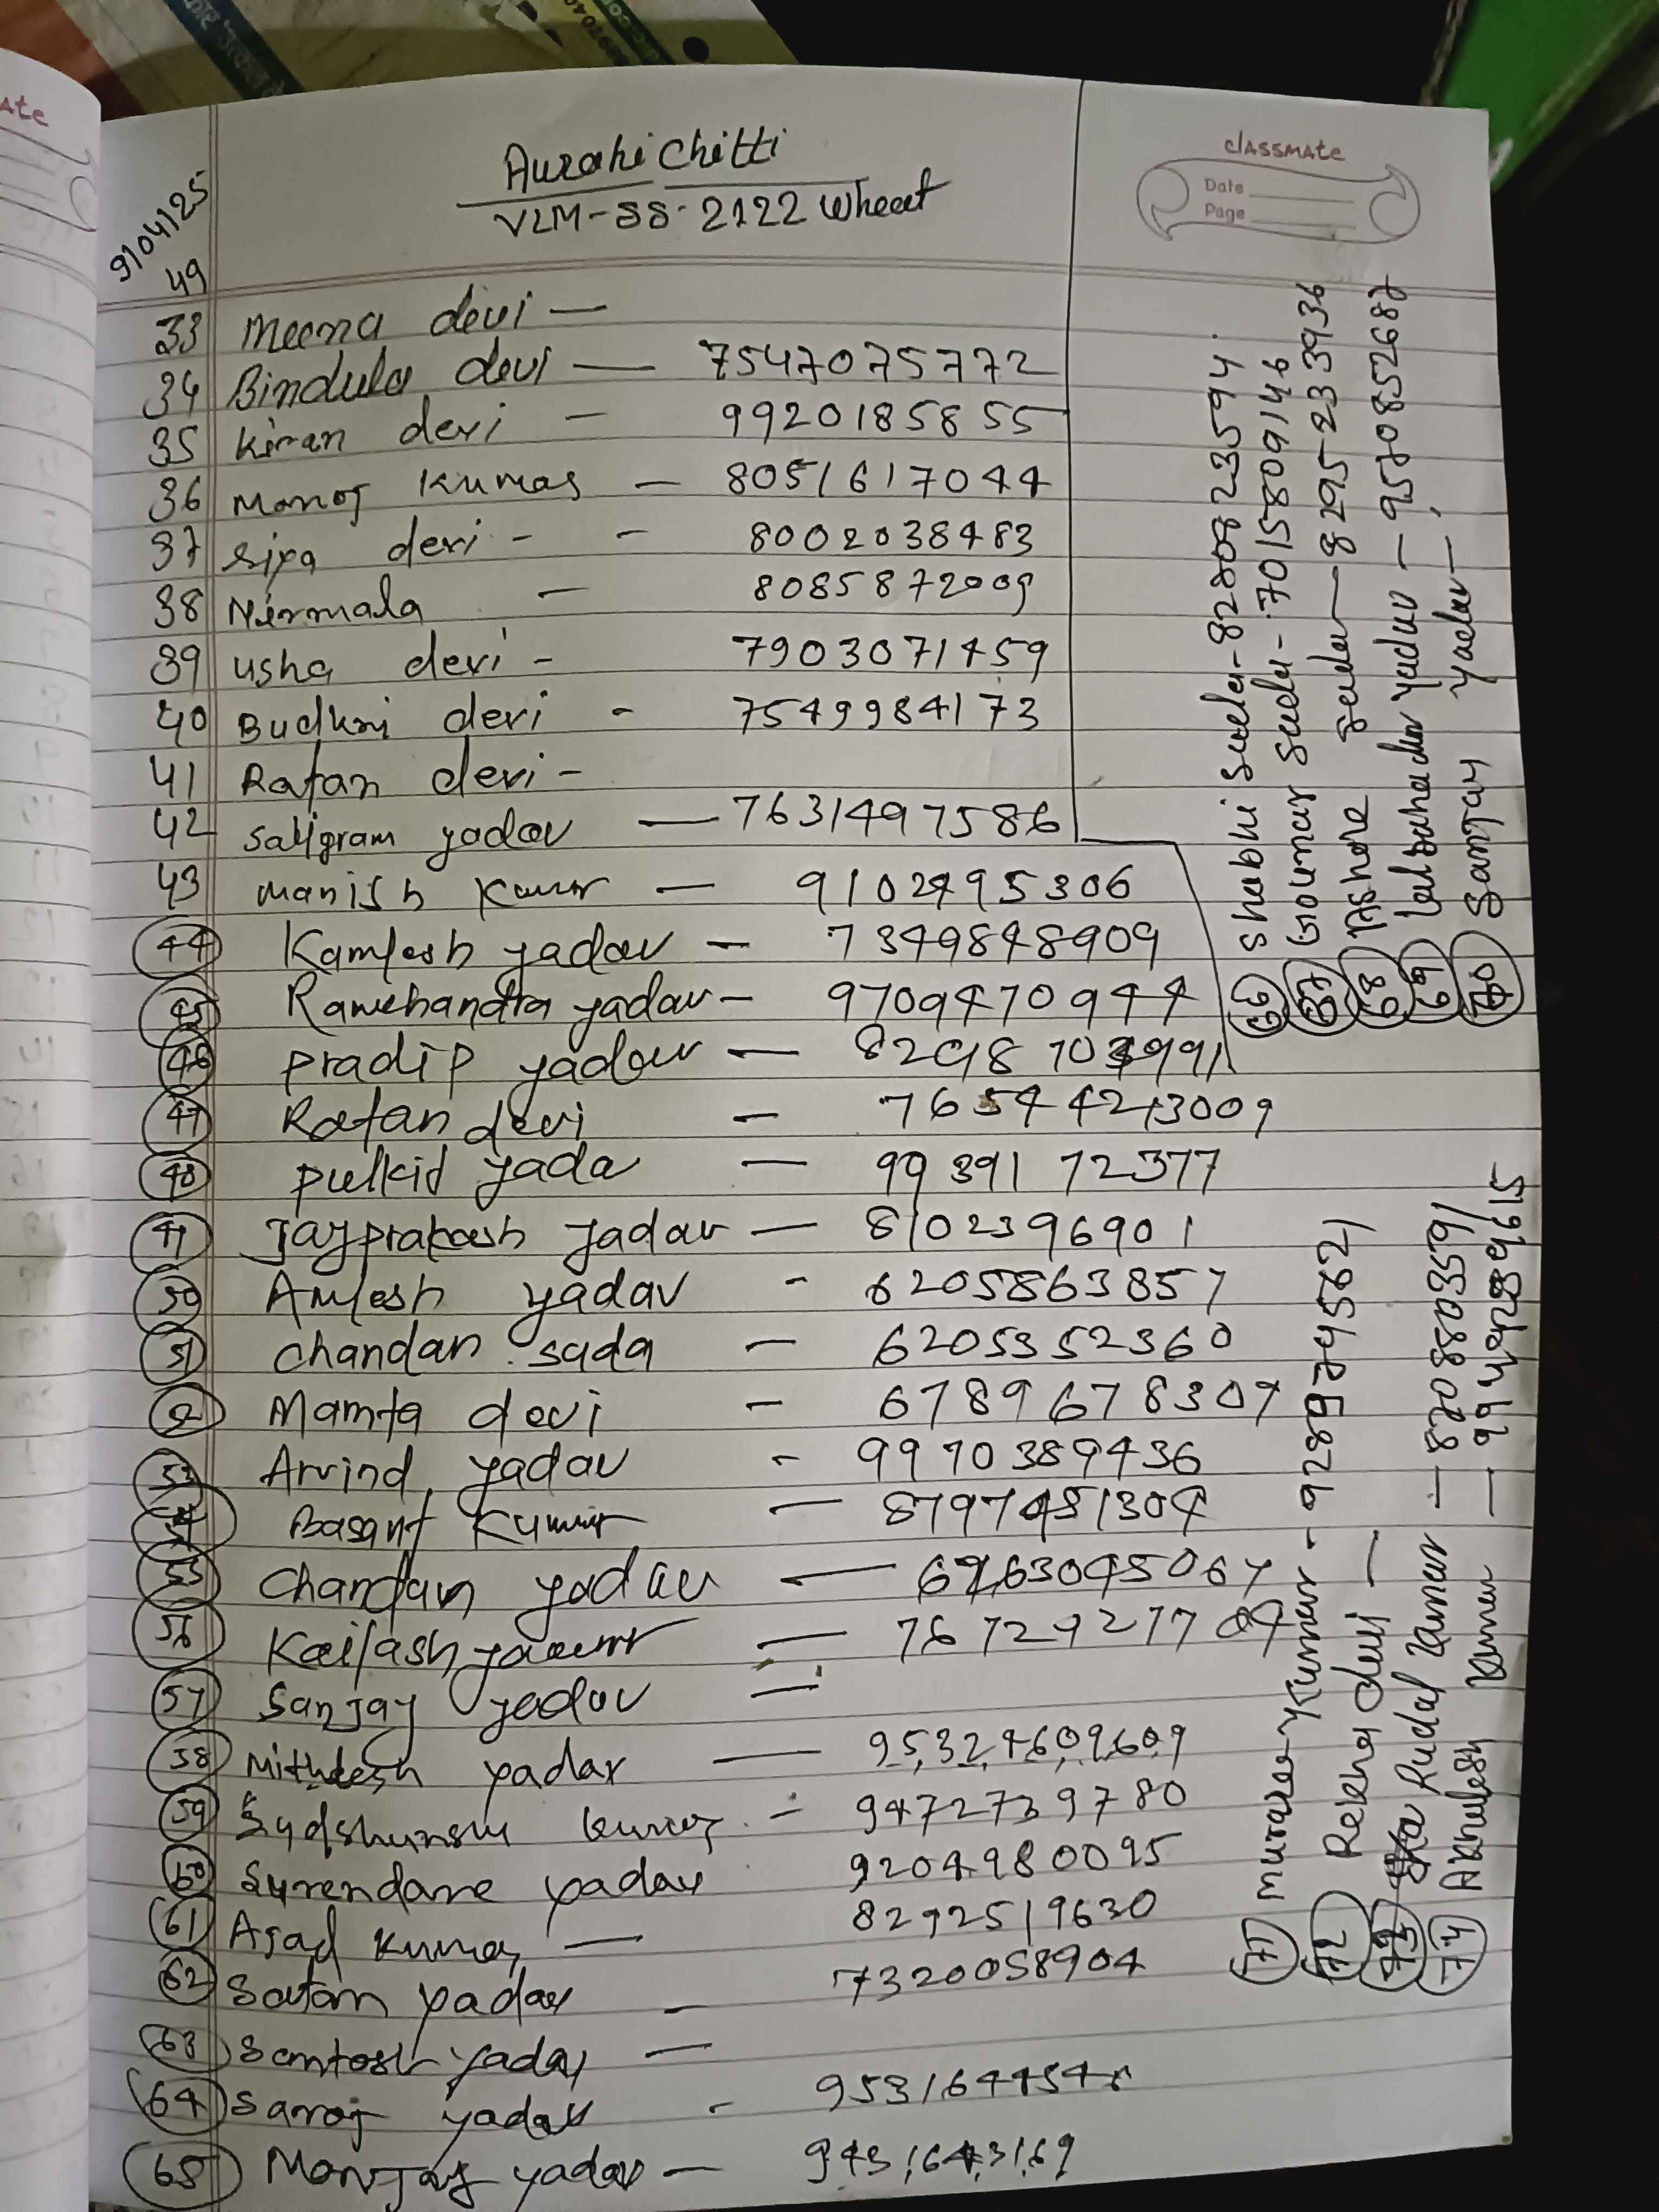 classmate
Date
Page
9/04/25
49
Aurahi Chitti
VLM-SS-2122 Wheat
33 Meena devi —
34 Bindula devi — 7547075772
35 Kiran devi — 9920185855
36 Manoj Kumar — 8051617044
37 Sipa devi - - 8002038483
38 Nirmala — 8085872009
39 Usha devi - 7903071459
40 Budhni devi - 7549984173
41 Ratan devi -
42 Saligram yadav — 7631497586
43 Manish Kumar — 9102495306
44 Kamlesh yadav — 7349848909
45 Ramchandra yadav — 9709470944
46 Pradip yadav —
47 Ratan devi —
48 Pulkit yada — 9939172377
49 Jayprakash Yadav — 8102396901
50 Amlesh yadav - 6205863857
51 Chandan sada — 6205352360
52 Mamta devi — 6789678307
53 Arvind yadav - 9970389436
54 Basant Kumar —
55 Chandan yadav —
56 Kailash —
57 Sanjay yadav —
58 Mithlesh yadav — 95324609609
59 - 9472739780
60 Surendare yadav 9204980095
61 Asad Kumar — 8292519630
62 Satan yadav — 7320058904
63 Santosh yadav —
64 Saroj yadav -
65 Manjay yadav — 9431643169
66 Shobhi sada - 8280823594
67 Goumar sada - 7015809146
68 Kishore sada — 8295233936
69 Lalbahadur yadav — 9570852687
70 Sanjay yadav —
71 Murare Kumar - 9289745621
72 Rekha devi —
73 Rudal Kumar — 8708803591
74 Akhilesh Kumar —